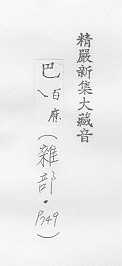 精嚴新集大藏音
巴百麻(雜部·P.349)